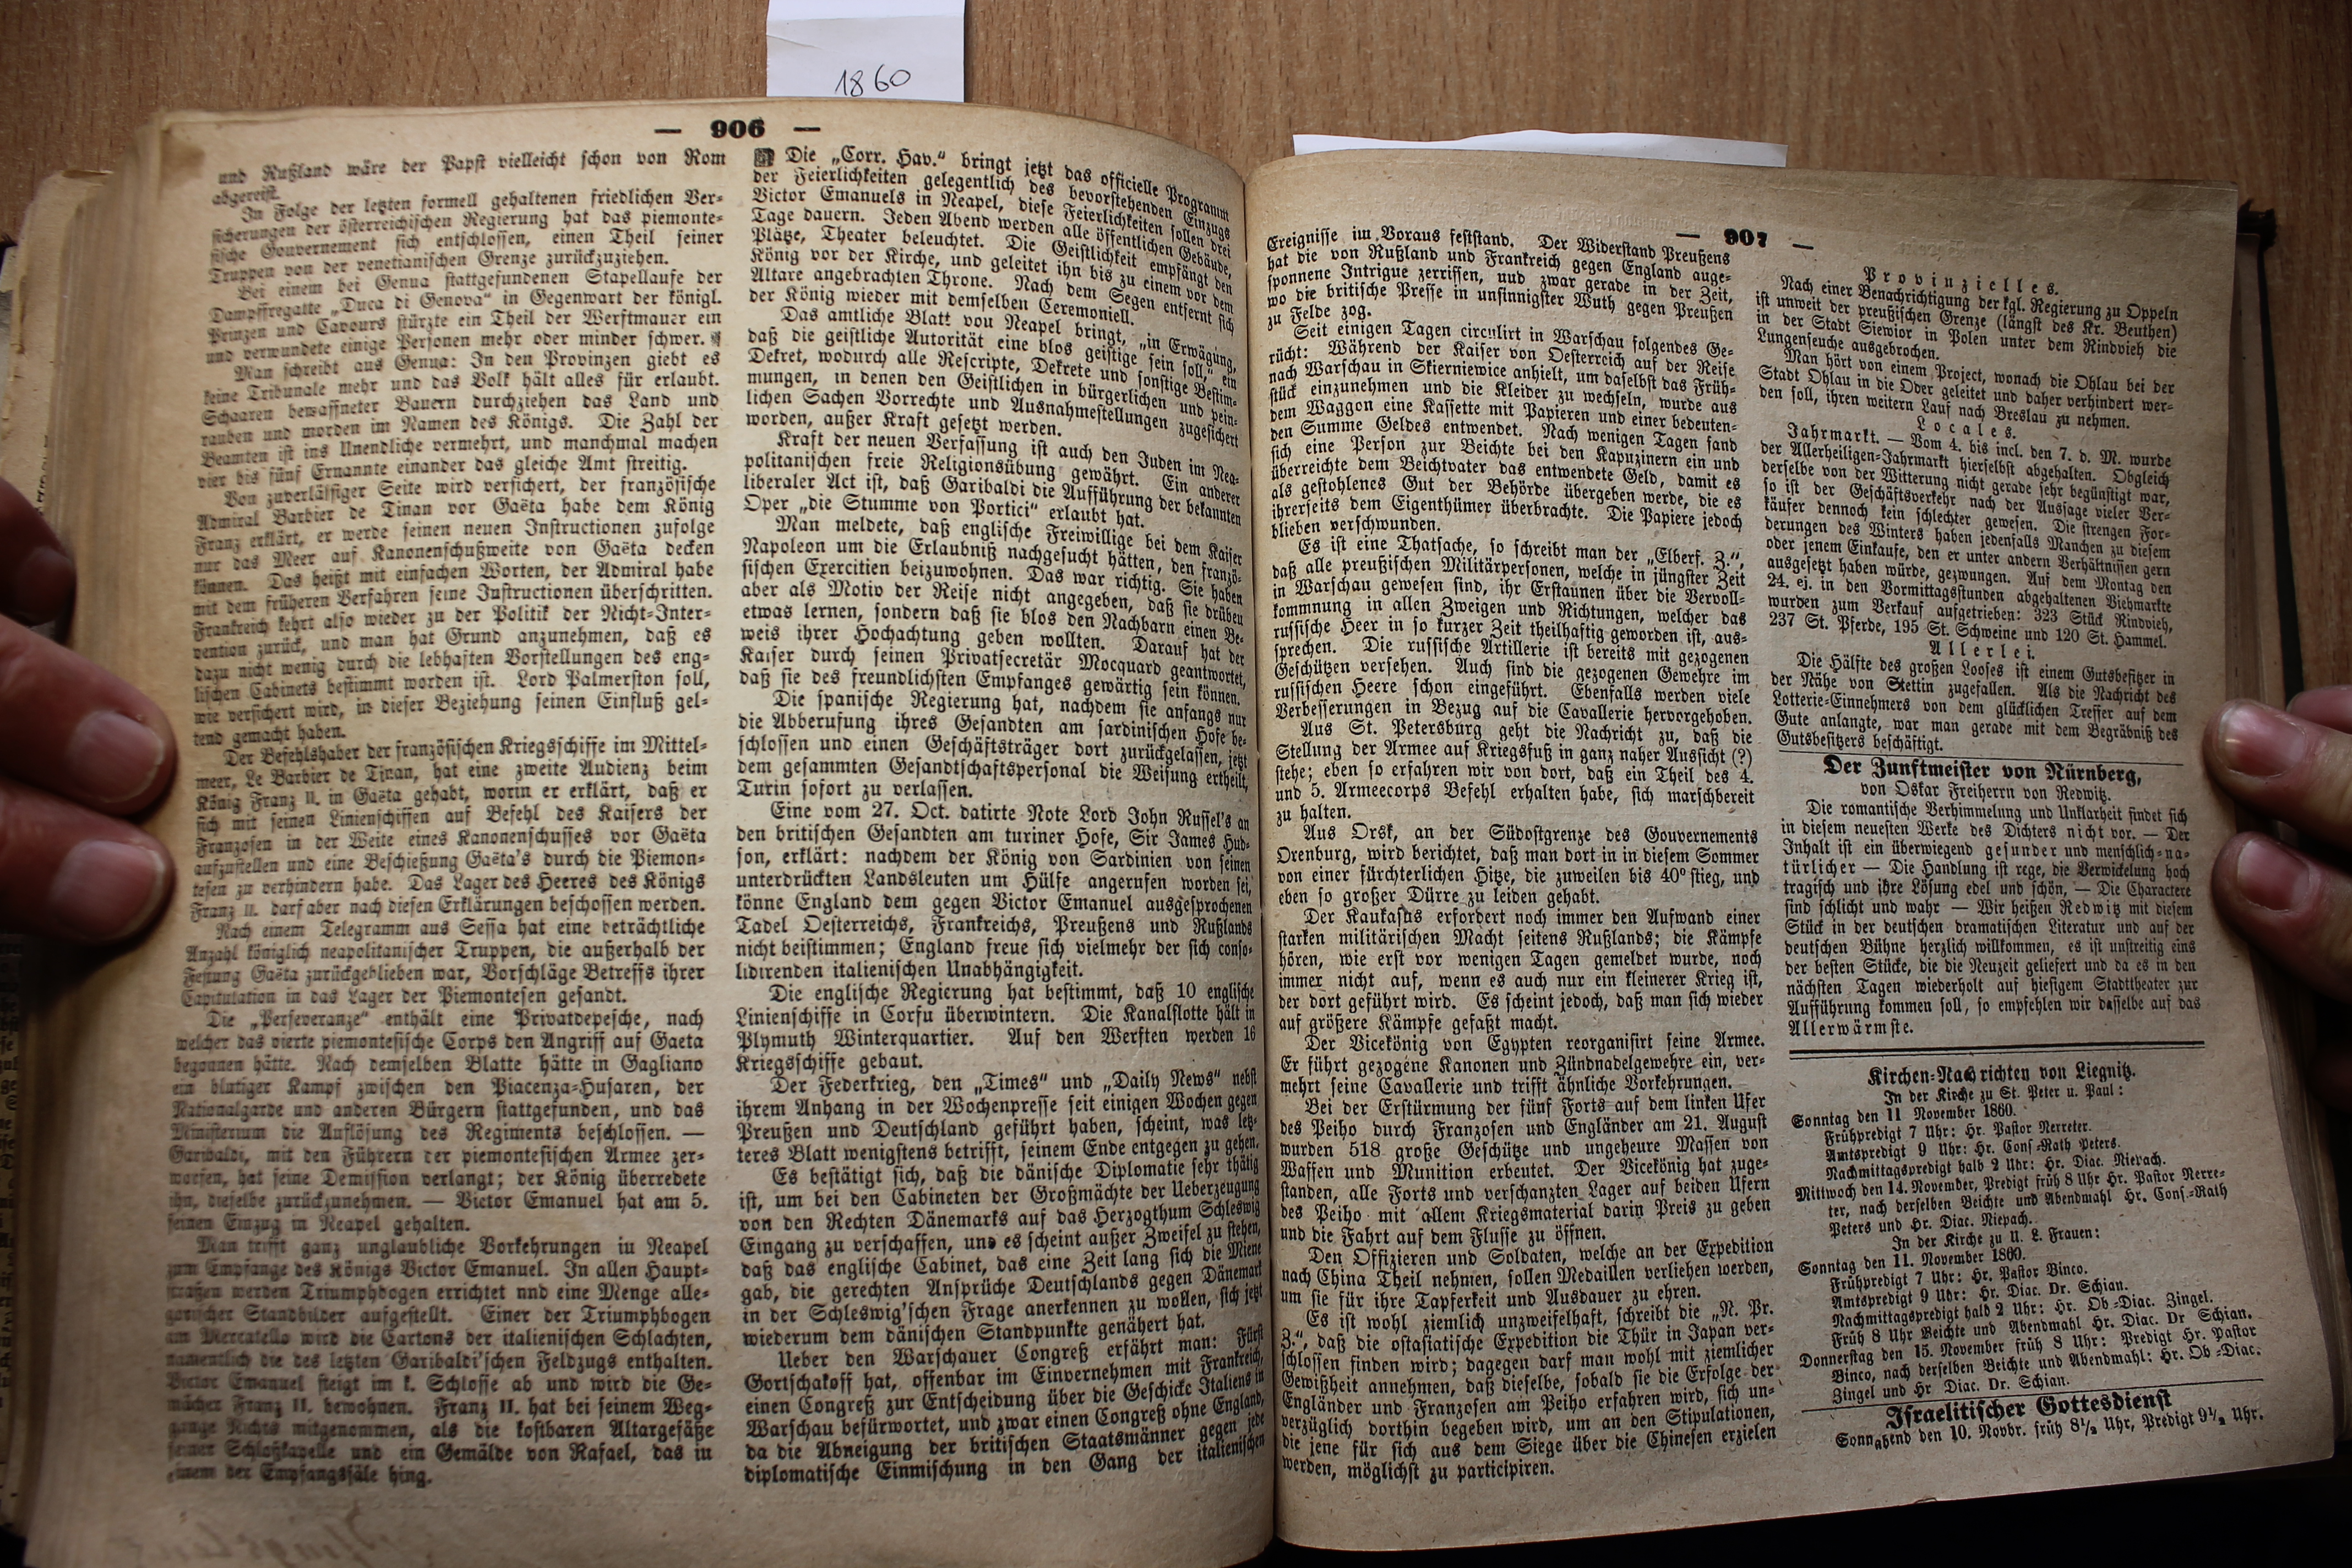 1860
— 906 —
und Rußland wäre der Papst vielleicht schon von Rom
abgereist.
In Folge der letzten formell gehaltenen friedlichen Ver-
sicherungen der österreichischen Regierung hat das piemonte-
sische Gouvernement sich entschlossen, einen Theil seiner
Truppen von der venetianischen Grenze zurückzuziehen.
Bei einem bei Genua stattgefundenen Stapellaufe der
Dampffregatte „Duca di Genova“ in Gegenwart der königl.
Prinzen und Cavours stürzte ein Theil der Werftmauer ein
und verwundete einige Personen mehr oder minder schwer.
Man schreibt aus Genua: In den Provinzen giebt es
keine Tribunale mehr und das Volk hält alles für erlaubt.
Schaaren bewaffneter Bauern durchziehen das Land und
rauben und morden im Namen des Königs. Die Zahl der
Beamten ist ins Unendliche vermehrt, und manchmal machen
vier bis fünf Ernannte einander das gleiche Amt streitig.
Von zuverlässiger Seite wird versichert, der französische
Admiral Barbier de Tinan vor Gaëta habe dem König
Franz erklärt, er werde seinen neuen Instructionen zufolge
nur das Meer auf Kanonenschußweite von Gaëta decken
können. Das heißt mit einfachen Worten, der Admiral habe
mit dem früheren Verfahren seine Instructionen überschritten.
Frankreich kehrt also wieder zu der Politik der Nicht-Inter-
vention zurück, und man hat Grund anzunehmen, daß es
dazu nicht wenig durch die lebhaften Vorstellungen des eng-
lischen Cabinets bestimmt worden ist. Lord Palmerston soll,
wie versichert wird, in dieser Beziehung seinen Einfluß gel-
tend gemacht haben.
Der Befehlshaber der französischen Kriegsschiffe im Mittel-
meer, Le Barbier de Tinan, hat eine zweite Audienz beim
König Franz II. in Gaëta gehabt, worin er erklärt, daß er
sich mit seinen Linienschiffen auf Befehl des Kaisers der
Franzosen in der Weite eines Kanonenschusses vor Gaëta
aufzustellen und eine Beschießung Gaëta's durch die Piemon-
tesen zu verhindern habe. Das Lager des Heeres des Königs
Franz II. darf aber nach diesen Erklärungen beschossen werden.
Nach einem Telegramm aus Sessa hat eine beträchtliche
Anzahl königlich neapolitanischer Truppen, die außerhalb der
Festung Gaëta zurückgeblieben war, Vorschläge Betreffs ihrer
Capitulation in das Lager der Piemontesen gesandt.
Die „Perseveranze“ enthält eine Privatdepesche, nach
welcher das vierte piemontesische Corps den Angriff auf Gaeta
begonnen hätte. Nach demselben Blatte hätte in Gagliano
ein blutiger Kampf zwischen den Piacenza-Husaren, der
Nationalgarde und anderen Bürgern stattgefunden, und das
Ministerium die Auflösung des Regiments beschlossen. —
Garibaldi, mit den Führern der piemontesischen Armee zer-
worfen, hat seine Demission verlangt; der König überredete
ihn, dieselbe zurückzunehmen. — Victor Emanuel hat am 5.
seinen Einzug in Neapel gehalten.
Man trifft ganz unglaubliche Vorkehrungen iu Neapel
zum Empfange des Königs Victor Emanuel. In allen Haupt-
straßen werden Triumphbogen errichtet nnd eine Menge alle-
gorischer Standbilder aufgestellt. Einer der Triumphbogen
am Mercatello wird die Cartons der italienischen Schlachten,
namentlich die des letzten Garibaldi'schen Feldzugs enthalten.
Victor Emanuel steigt im k. Schlosse ab und wird die Ge-
mächer Franz II. bewohnen. Franz II. hat bei seinem Weg-
gange Nichts mitgenommen, als die kostbaren Altargefäße
seiner Schloßkapelle und ein Gemälde von Rafael, das iu
einem der Empfangssäle hing.
Die „Corr. Hav.“ bringt jetzt das officielle Programm
der Feierlichkeiten gelegentlich des bevorstehenden Einzugs
Victor Emanuels in Neapel, diese Feierlichkeiten sollen drei
Tage dauern. Jeden Abend werden alle öffentlichen Gebäude,
Plätze, Theater beleuchtet. Die Geistlichkeit empfängt den
König vor der Kirche, und geleitet ihn bis zu einem vor dem
Altare angebrachten Throne. Nach dem Segen entfernt sich
der König wieder mit demselben Ceremoniell.
Das amtliche Blatt vou Neapel bringt, „in Erwägung,
daß die geistliche Autorität eine blos geistige sein soll,“ ein
Dekret, wodurch alle Rescripte, Dekrete und sonstige Bestim-
mungen, in denen den Geistlichen in bürgerlichen und pein-
lichen Sachen Vorrechte und Ausnahmestellungen zugesichert
worden, außer Kraft gesetzt werden.
Kraft der neuen Verfassung ist auch den Juden im Nea-
politanischen freie Religionsübung gewährt. Ein anderer
liberaler Act ist, daß Garibaldi die Aufführung der bekannten
Oper „die Stumme von Portici“ erlaubt hat.
Man meldete, daß englische Freiwillige bei dem Kaiser
Napoleon um die Erlaubniß nachgesucht hätten, den franzö-
sischen Exercitien beizuwohnen. Das war richtig. Sie haben
aber als Motiv der Reise nicht angegeben, daß sie drüben
etwas lernen, sondern daß sie blos den Nachbarn einen Be-
weis ihrer Hochachtung geben wollten. Darauf hat der
Kaiser durch seinen Privatsecretär Mocquard geantwortet,
daß sie des freundlichsten Empfanges gewärtig sein können.
Die spanische Regierung hat, nachdem sie anfangs nur
die Abberufung ihres Gesandten am sardinischen Hofe be-
schlossen und einen Geschäftsträger dort zurückgelassen, jetzt
dem gesammten Gesandtschaftspersonal die Weisung ertheilt,
Turin sofort zu verlassen.
Eine vom 27. Oct. datirte Note Lord John Russel's an
den britischen Gesandten am turiner Hofe, Sir James Hud-
son, erklärt: nachdem der König von Sardinien von seinen
unterdrückten Landsleuten um Hülfe angerufen worden sei,
könne England dem gegen Victor Emanuel ausgesprochenen
Tadel Oesterreichs, Frankreichs, Preußens und Rußlands
nicht beistimmen; England freue sich vielmehr der sich conso-
lidirenden italienischen Unabhängigkeit.
Die englische Regierung hat bestimmt, daß 10 englische
Linienschiffe in Corfu überwintern. Die Kanalflotte hält in
Plymuth Winterquartier. Auf den Werften werden 16
Kriegsschiffe gebaut.
Der Federkrieg, den „Times“ und „Daily News“ nebst
ihrem Anhang in der Wochenpresse seit einigen Wochen gegen
Preußen und Deutschland geführt haben, scheint, was letz-
teres Blatt wenigstens betrifft, seinem Ende entgegen zu gehen.
Es bestätigt sich, daß die dänische Diplomatie sehr thätig
ist, um bei den Cabineten der Großmächte der Ueberzeugung
von den Rechten Dänemarks auf das Herzogthum Schleswig
Eingang zu verschaffen, und es scheint außer Zweifel zu stehen,
daß das englische Cabinet, das eine Zeit lang sich die Miene
gab, die gerechten Ansprüche Deutschlands gegen Dänemark
in der Schleswig'schen Frage anerkennen zu wollen, sich jetzt
wiederum dem dänischen Standpunkte genähert hat.
Ueber den Warschauer Congreß erfährt man: Fürst
Gortschakoff hat, offenbar im Einvernehmen mit Frankreich,
einen Congreß zur Entscheidung über die Geschicke Italiens in
Warschau befürwortet, und zwar einen Congreß ohne England,
da die Abneigung der britischen Staatsmänner gegen jede
diplomatische Einmischung in den Gang der italienischen
— 907 —
Ereignisse im Voraus feststand. Der Widerstand Preußens
hat die von Rußland und Frankreich gegen England auge-
sponnene Intrigue zerrissen, nud zwar gerade in der Zeit,
wo die britische Presse in unsinnigster Wuth gegen Preußen
zu Felde zog.
Seit einigen Tagen circulirt in Warschau folgendes Ge-
rücht: Während der Kaiser von Oesterreich auf der Reise
nach Warschau in Skierniewice anhielt, um daselbst das Früh-
stück einzunehmen und die Kleider zu wechseln, wurde aus
dem Waggon eine Kassette mit Papieren und einer bedeuten-
den Summe Geldes entwendet. Nach wenigen Tagen fand
sich eine Person zur Beichte bei den Kapuzinern ein und
überreichte dem Beichtvater das entwendete Geld, damit es
als gestohlenes Gut der Behörde übergeben werde, die es
ihrerseits dem Eigenthümer überbrachte. Die Papiere jedoch
blieben verschwunden.
Es ist eine Thatsache, so schreibt man der „Elberf. Z.“,
daß alle preußischen Militärpersonen, welche in jüngster Zeit
in Warschau gewesen sind, ihr Erstaunen über die Vervoll-
kommnung in allen Zweigen und Richtungen, welcher das
russische Heer in so kurzer Zeit theilhaftig geworden ist, aus-
sprechen. Die russische Artillerie ist bereits mit gezogenen
Geschützen versehen. Auch sind die gezogenen Gewehre im
russischen Heere schon eingeführt. Ebenfalls werden viele
Verbesserungen in Bezug auf die Cavallerie hervorgehoben.
Aus St. Petersburg geht die Nachricht zu, daß die
Stellung der Armee auf Kriegsfuß in ganz naher Aussicht (?)
stehe; eben so erfahren wir von dort, daß ein Theil des 4.
und 5. Armeecorps Befehl erhalten habe, sich marschbereit
zu halten.
Aus Orsk, an der Südostgrenze des Gouvernements
Orenburg, wird berichtet, daß man dort in in diesem Sommer
von einer fürchterlichen Hitze, die zuweilen bis 40° stieg, und
eben so großer Dürre zu leiden gehabt.
Der Kaukasus erfordert noch immer den Aufwand einer
starken militärischen Macht seitens Rußlands; die Kämpfe
hören, wie erst vor wenigen Tagen gemeldet wurde, noch
immer nicht auf, wenn es auch nur ein kleinerer Krieg ist,
der dort geführt wird. Es scheint jedoch, daß man sich wieder
auf größere Kämpfe gefaßt macht.
Der Vicekönig von Egypten reorganisirt seine Armee.
Er führt gezogene Kanonen und Zündnadelgewehre ein, ver-
mehrt seine Cavallerie und trifft ähnliche Vorkehrungen.
Bei der Erstürmung der fünf Forts auf dem linken Ufer
des Peiho durch Franzosen und Engländer am 21. August
wurden 518 große Geschütze und ungeheure Massen von
Waffen und Munition erbeutet. Der Vicekönig hat zuge-
standen, alle Forts und verschanzten Lager auf beiden Ufern
des Peiho mit allem Kriegsmaterial darin Preis zu geben
und die Fahrt auf dem Flusse zu öffnen.
Den Offizieren und Soldaten, welche an der Expedition
nach China Theil nehmen, sollen Medaillen verliehen werden,
um sie für ihre Tapferkeit und Ausdauer zu ehren.
Es ist wohl ziemlich unzweifelhaft, schreibt die „N. Pr.
Z.“, daß die ostasiatische Expedition die Thür in Japan ver-
schlossen finden wird; dagegen darf man wohl mit ziemlicher
Gewißheit annehmen, daß dieselbe, sobald sie die Erfolge der
Engländer und Franzosen am Peiho erfahren wird, sich un-
verzüglich dorthin begeben wird, um an den Stipulationen,
die jene für sich aus dem Siege über die Chinesen erzielen
werden, möglichst zu participiren.
Provinzielles.
Nach einer Benachrichtigung der kgl. Regierung zu Oppeln
ist unweit der preußischen Grenze (längst des Kr. Beuthen)
in der Stadt Siewior in Polen unter dem Rindvieh die
Lungenseuche ausgebrochen.
Man hört von einem Project, wonach die Ohlau bei der
Stadt Ohlau in die Oder geleitet und daher verhindert wer-
den soll, ihren weitern Lauf nach Breslau zu nehmen.
Locales.
Jahrmarkt. — Vom 4. bis incl. den 7. d. M. wurde
der Allerheiligen-Jahrmarkt hierselbst abgehalten. Obgleich
derselbe von der Witterung nicht gerade sehr begünstigt war,
so ist der Geschäftsverkehr nach der Aussage vieler Ver-
käufer dennoch kein schlechter gewesen. Die strengen For-
derungen des Winters haben jedenfalls Manchen zu diesem
oder jenem Einkaufe, den er unter andern Verhältnissen gern
ausgesetzt haben würde, gezwungen. Auf dem Montag den
24. ej. in den Vormittagsstunden abgehaltenen Viehmarkte
wurden zum Verkauf aufgetrieben: 323 Stück Rindvieh,
237 St. Pferde, 195 St. Schweine und 120 St. Hammel.
Allerlei.
Die Hälfte des großen Looses ist einem Gutsbesitzer in
der Nähe von Stettin zugefallen. Als die Nachricht des
Lotterie-Einnehmers von dem glücklichen Treffer auf dem
Gute anlangte, war man gerade mit dem Begräbniß des
Gutsbesitzers beschäftigt.
Der Zunftmeister von Nürnberg,
von Oskar Freiherrn von Redwitz.
Die romantische Verhimmelung und Unklarheit findet sich
in diesem neuesten Werke des Dichters nicht vor. — Der
Inhalt ist ein überwiegend gesunder und menschlich-na-
türlicher — Die Handlung ist rege, die Verwickelung hoch
tragisch und ihre Lösung edel und schön, — Die Charactere
sind schlicht und wahr — Wir heißen Redwitz mit diesem
Stück in der deutschen dramatischen Literatur und auf der
deutschen Bühne herzlich willkommen, es ist unstreitig eins
der besten Stücke, die die Neuzeit geliefert und da es in den
nächsten Tagen wiederholt auf hiesigem Stadttheater zur
Aufführung kommen soll, so empfehlen wir dasselbe auf das
Allerwärmste.
Kirchen-Nachrichten von Liegnitz.
In der Kirche zu St. Peter u. Paul:
Sonntag den 11 November 1860.
Frühpredigt 7 Uhr: Hr. Pastor Nerreter.
Amtspredigt 9 Uhr: Hr. Cons-Rath Peters.
Nachmittagspredigt halb 2 Uhr: Hr. Diac. Niepach.
Mittwoch den 14. November, Predigt früh 8 Uhr Hr. Pastor Nerre-
ter, nach derselben Beichte und Abendmahl Hr. Cons.-Rath
Peters und Hr. Diac. Niepach.
In der Kirche zu U. L. Frauen:
Sonntag den 11. November 1860.
Frühpredigt 7 Uhr: Hr. Pastor Binco.
Amtspredigt 9 Uhr: Hr. Diac. Dr. Schian.
Nachmittagspredigt halb 2 Uhr: Hr. Ob-Diac. Zingel.
Früh 8 Uhr Beichte und Abendmahl Hr. Diac. Dr Schian.
Donnerstag den 15. November früh 8 Uhr: Predigt Hr. Pastor
Binco, nach derselben Beichte und Abendmahl: Hr. Ob-Diac.
Zingel und Hr Diac. Dr. Schian.
Israelitischer Gottesdienst
Sonnabend den 10. Novbr. früh 8½ Uhr, Predigt 9½ Uhr.